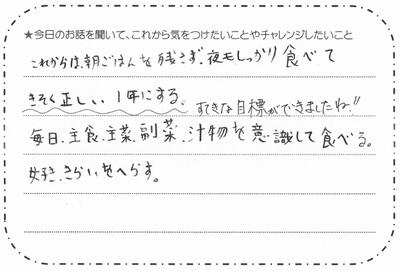 ★今日のお話を聞いて、これから気をつけたいことやチャレンジしたいこと
これからは、朝ごはんを残さず、夜もしっかり食べて
きそく正しい、1年にする。 すてきな目標ができましたね!!
毎日、主食、主菜、副菜、汁物を意識して食べる。
好き、きらいをへらす。